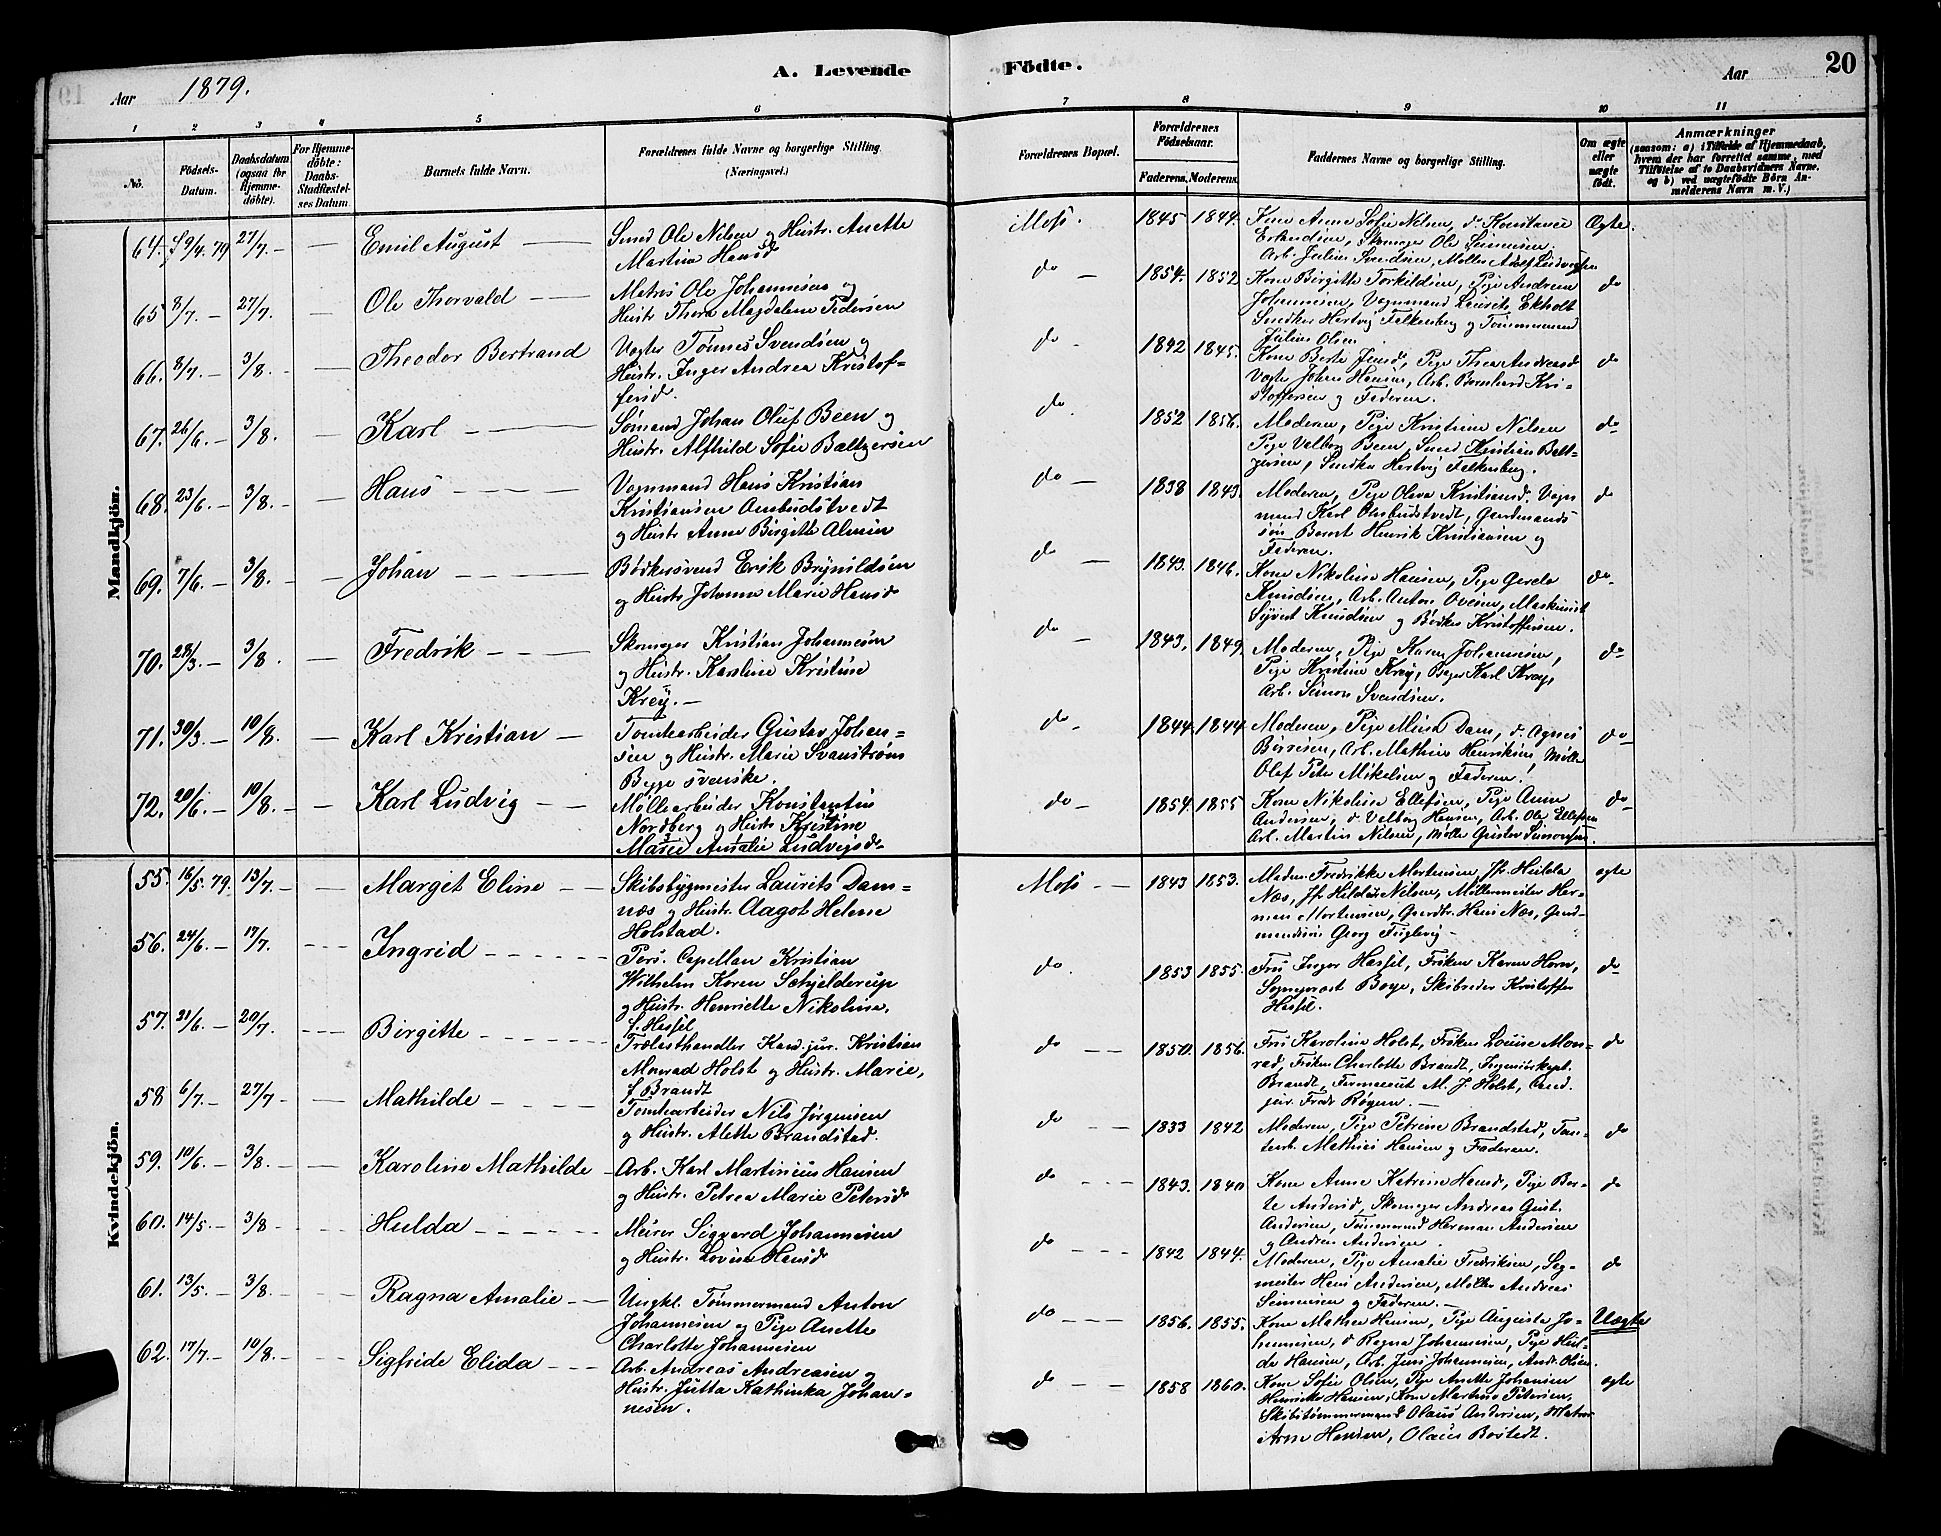 19
Aar 1879.
A. Levende Födte.
Aar
20
1 2 3 4 5 6 7 8 9 10 11
No.
Födsels-
Datum.
Daabsdatum
(ogsaa for
Hjemme-
döbte).
For Hjemme-
döbte:
Daabs-
Stadfæstel-
ses Datum
Barnets fulde Navn.
Forældrenes fulde Navne og borgerlige Stilling
(Næringsvei.)
Forældrenes Bopæl.
Forældrenes
Födselsaar.
Faderens. Moderens.
Faddernes Navne og borgerlige Stilling.
Om ægte
eller
uægte
födt.
Anmærkninger
(saasom: a) i Tilfælde af Hjemmedaab,
hvem der har forrettet samme, med
Tilföielse af to Daabsvidners Navne.
og b) ved uægtefödte Börn An-
melderens Navn m. V.)
Mandkjön.
64. 19/4. 79 27/7. — — Emil August —
Smed Ole Nilsen og Hustr. Anette
Martina Hansd
Moss. 1845 1844.
Kone Anne Sofie Nilsen, d. Konstance
Erlandsen, Skomager Ole Simensen.
Arb. Julius Smedsen, Møller Adolf Ludvigsen
Ægte.
65 8/7. — 27/7. Ole Thorvald —
Matros Ole Johannesen og
Hustr Thora Magdalene Pedersen
do — 1854. 1852
Kone Birgitte Torkildsen, Pige Andrea
Johannesen, Vognmand Laurits Ekholdt
Snedker Hertvig Falkenberg og Tømmermand
Julius Olsen
do
66. 8/7. — 3/8. — Theodor Bertrand
Vogter Tønnes Svendsen og
Hustr. Inger Andrea Kristof-
fersd.
do - 1842 1845.
Kone Berte Jensd, Pige Thea Andreasd
Vogter Johan Hansen, Arb. Bernhard Kri-
stoffersen og Faderen.
do
67. 26/6. — 3/8. — Karl —
Sømand Johan Oluf Been og
Hustr. Alfhild Sofie Baltzersen
do. 1852 1856.
Moderen, Pige Kristine Nilsen
Pige Valborg Been, Smed Kristian Balt-
zersen, Snedker Hertvig Falkenberg.
do
68. 23/6. — 3/8. — Hans —
Vognmand Hans Kristian
Kristiansen Ambudstvedt
og Hustr Anne Birgitte Almin
do — 1838 1843.
Moderen, Pige Oleva Kristiansd. Vogn
mand Karl Ombudstvedt, Gaardmands
søn Bernt Henrik Kristiansen og
Faderen.
do
69. 7/6. — 3/8. — Johan —
Bødkersvend Erik Brynildsen
og Hustr Johanne Marie Hansd
do — 1843. 1846.
Kone Nikoline Hansen, Pige Gerda
Knudsen, Arb. Anton Ovesen, Maskinist
Syvert Knudsen og Bødker Kristoffersen.
do.
70. 28/3. — 3/8. — Fredrik —
Skomager Kristian Johannesen
og Hustr. Karoline Kristine
Krey. —
do — 1843. 1849.
Moderen, Pige Karen Johannesen,
Pige Kristine Krey, Bager Karl Krey,
Arb. Simon Svendsen.
do
71. 30/3. — 10/8. — Karl Kristian —
Tomtearbeider Gustav Johan-
sen og Hustr. Marie Svanstrøm
Begge svenske.
do — 1844. 1844.
Moderen, Pige Mina Dam, d. Agnes
Børresen, Arb. Mathias Henriksen, Mølle
Olef Peter Mikelsen og Faderen.
do
72. 20/6. — 10/8. — Karl Ludvig —
Møllearbeider Konstantin
Nordberg og Hustr Kristine
Marie Amalie Ludvigsd.
do — 1854. 1855
Kone Nikoline Ellefsen, Pige Anne
Andersen, d Valborg Hansen, Arb. Ole Ellefsen
Arb. Martin Nilsen, Møller Gustav Simonsen
do
Kvindekjön.
55. 16/5. 79. 13/7. — — Marget Eline —
Skibsbygmester Laurits Dam-
næs og Hustr. Aagot Helene
Holstad.
Moss — 1843 1853.
Madm. Fredrikke Mortensen, Jfr. Hulda
Næs, Jfr. Hilda Nilsen, Møllermester Her-
man Mortensen, Gaardbr. Hans Næs, Gaard
mandssøn Georg Fuglevig —
ægte
56. 24/6. — 17/7. Ingrid —
Pers. Capellan Kristian
Wilhelm Koren Schjelderup
og Hustr. Henriette Nikoline,
f. Hassel
do. 1853 1855.
Fru Inger Hassel, Frøken Karen Horn,
Sogneprest Boye, Skibsreder Kristoffer
Hassel.
do
57. 21/6. — 20/7. Birgitte —
Trælasthandler Kand. jur. Kristian
Monrad Holst og Hustr. Marie,
f. Brandt
do — 1850. 1856.
Fru Karoline Holst, Frøken Louise Mon-
rad, Frøken Charlotte Brandt, Ingeniørkapt.
Brandt, Farmaceut M. J. Holst, Cand.
jur. Fredr Bøgen. —
do
58 6/7. — 27/7 — Mathilde —
Tomtearbeider Nils Jørgensen
og Hustr. Alette Brandsted.
do — 1833 1842
Moderen, Pige Petrine Brandsted, Tom-
tearb. Mathias Hansen og Faderen.
do
59. 10/6. — 3/8. — Karoline Mathilde —
Arb. Karl Martinius Hansen
og Hustr. Petrea Marie Petersd.
do — 1843. 1840
Kone Anne Katrine Hansd, Pige Ber-
te Andersd, Skomager Andreas Gust.
Andersen, Tømmermand Herman Andersen
og Andreas Andersen
do
60. 14/5. — 3/8 — Hulda —
Meirer Sigvard Johannesen
og Hustr. Lovise Hansd
do — 1842 1844.
Moderen, Pige Amalie Fredriksen, Sag-
mester Hans Andersen, Møller Andreas
Simensen og Faderen. —
do
61. 13/5. 3/8. — Ragna Amalie —
Ungkl. Tømmermand Anton
Johannesen og Pige Anette
Charlotte Johannesen
do — 1856. 1855.
Kone Mathea Hansen, Pige Augusta Jo-
hannesen, d Ragna Johannesen, Pige Hul-
da Hansen, Arb. Jens Johannesen, Andr. Olsen.
Uægte
62. 17/7. — 10/8. — Sigfride Elida —
Arb. Andreas Andreasen og
Hustr. Jutta Kathinka Johan-
nesen.
do — 1858 1860.
Kone Sofie Olsen, Pige Anette Johannesen
Henrikke Hansen, Kone Martine Petersen,
Skibstømmermand Olaus Andersen, Matros
Arne Hansen, Olaus Bostedt.
ægte